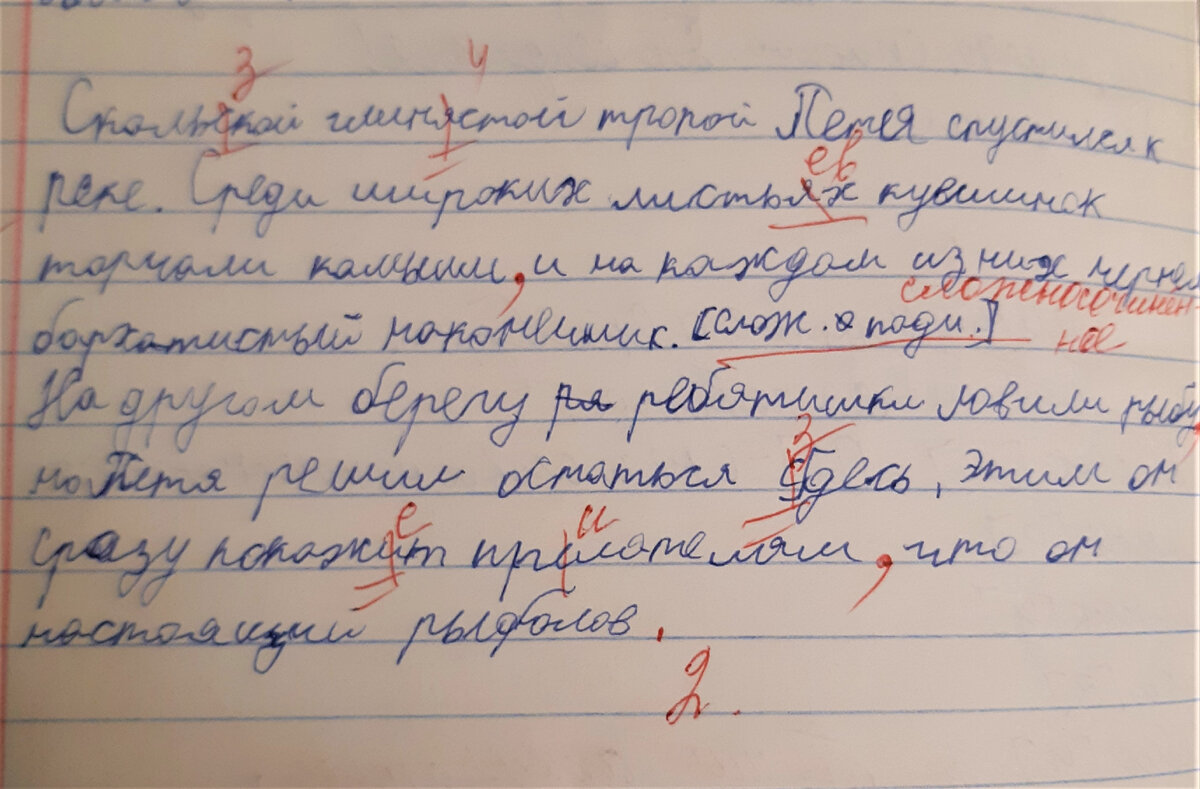 з и
Скальской глинястой тропой Петя спустился к
ев
реке. Среди широких листьях кувшинок
торчали камыши, и на каждом из них черне
сложносочинен
бархатистый наконешник. [слож. о подч.] ное
На другом берегу ря ребятишки ловили рыбу,
з
но Петя решил остаться сдесь, этим он
е и
сразу покажит преятелям, что он
настоящий рыболов.
2.